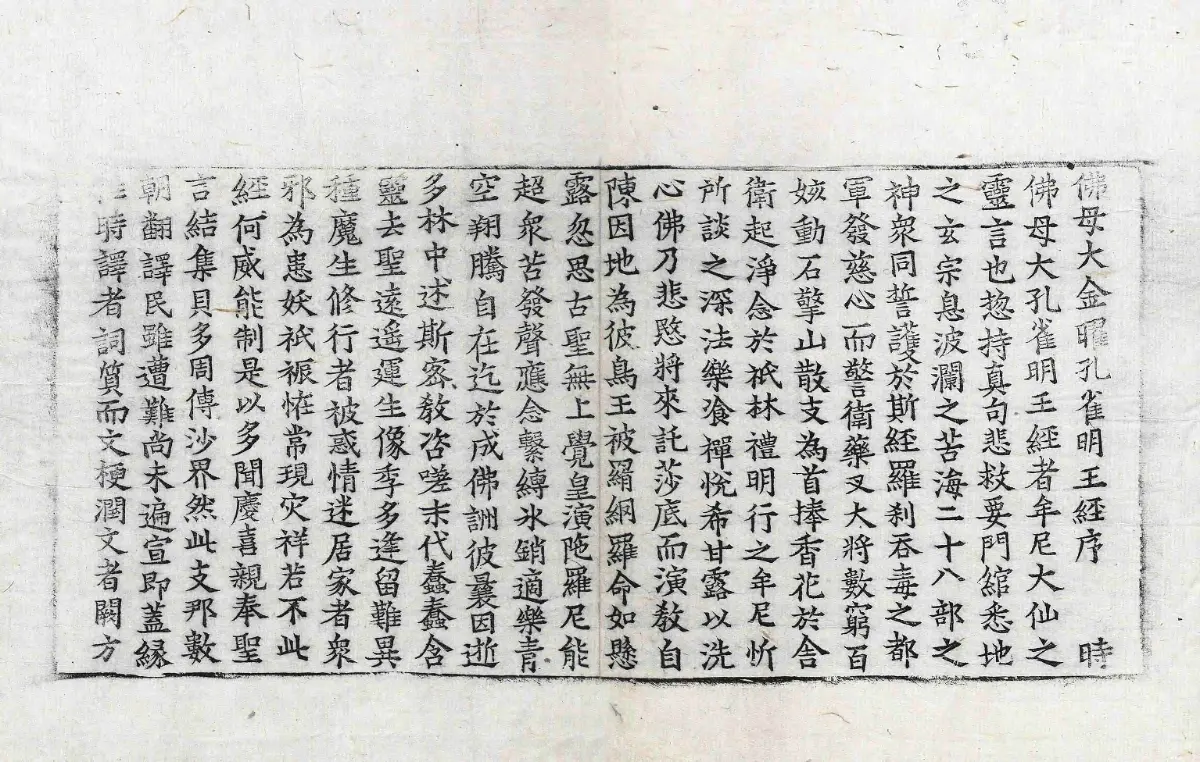 佛母大金曜孔雀明王經序 時
佛母大孔雀明王經者牟尼大仙之
靈言也惣持真句悲救要門綰悉地
之玄宗息波瀾之苦海二十八部之
神衆同誓護於斯經羅刹吞毒之都
軍發慈心而警衛藥叉大將數窮百
姟動石擎山散支為首捧香花於舍
衛起淨念於祇林禮明行之牟尼忻
所談之深法樂飡禪悅希甘露以洗
心佛乃悲愍將來託莎底而演教自
陳因地為彼鳥王被羂網羅命如懸
露忽思古聖無上覺皇演陁羅尼能
超衆苦發聲應念繫縛氷銷適樂青
空翔騰自在迄於成佛詶彼曩因逝
多林中述斯密教咨嗟末代蠢蠢含
靈去聖遠遥運生像季多逢留難異
種魔生修行者被惑情迷居家者衆
邪為患妖祇裖恠常現灾祥若不此
經何威能制是以多聞慶喜親奉聖
言結集貝多周傳沙界然此支那數
朝翻譯民雖遭難尚未遍宣即蓋縁
時譯者詞質而文梗潤文者闕方